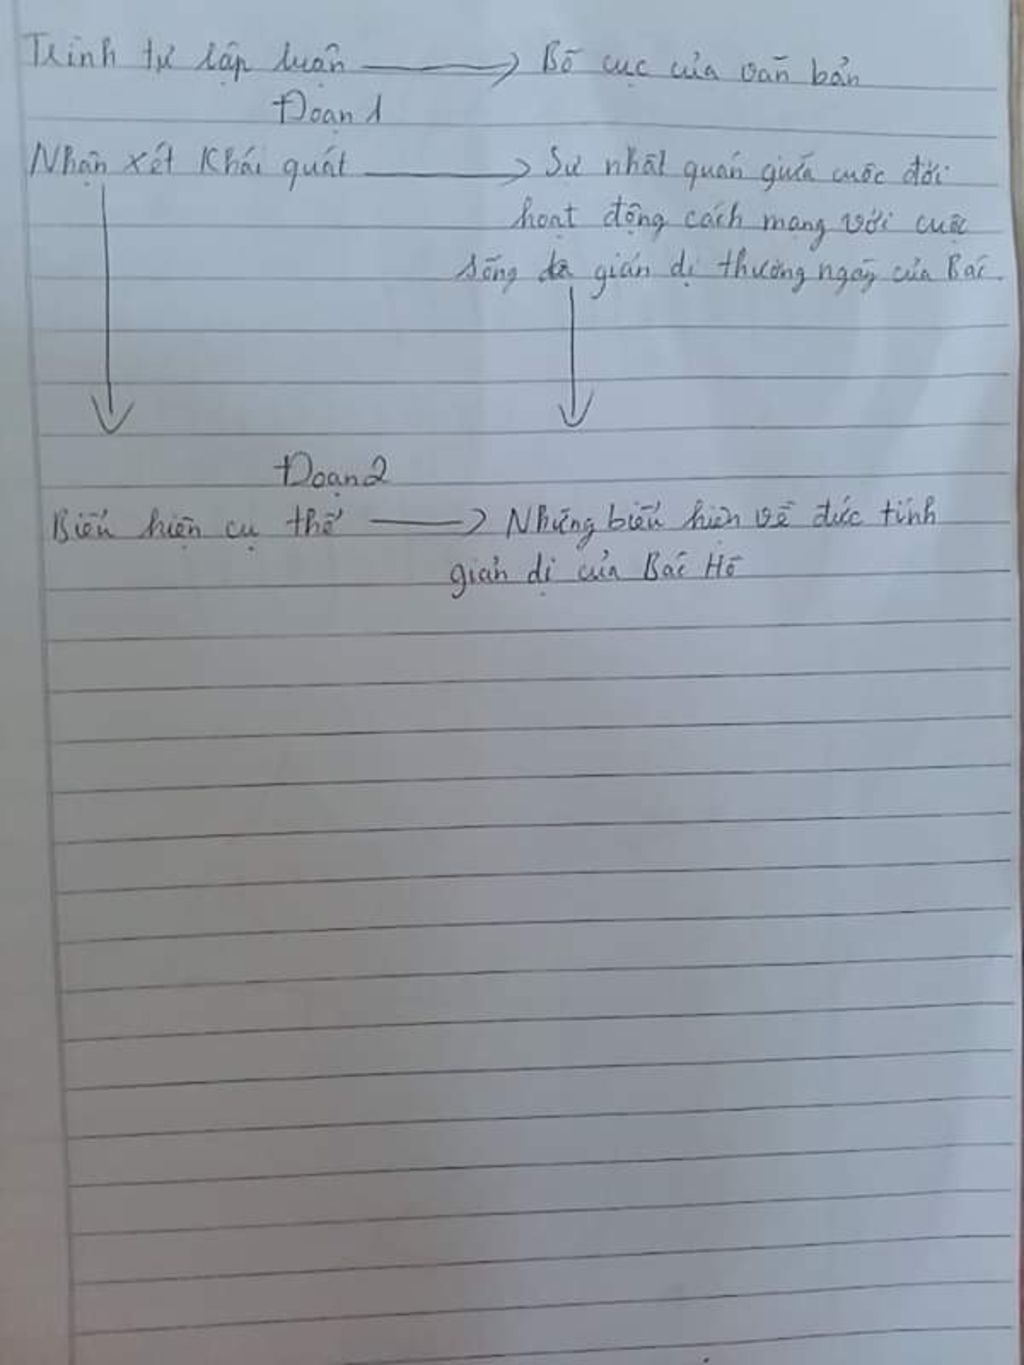 Trình tự lập luận → Bố cục của văn bản
Đoạn 1
Nhận xét Khái quát → Sự nhất quán giữa cuộc đời
hoạt động cách mạng với cuộc
sống giản dị thường ngày của Bác.
Đoạn 2
Biểu hiện cụ thể → Những biểu hiện về đức tính
giản dị của Bác Hồ